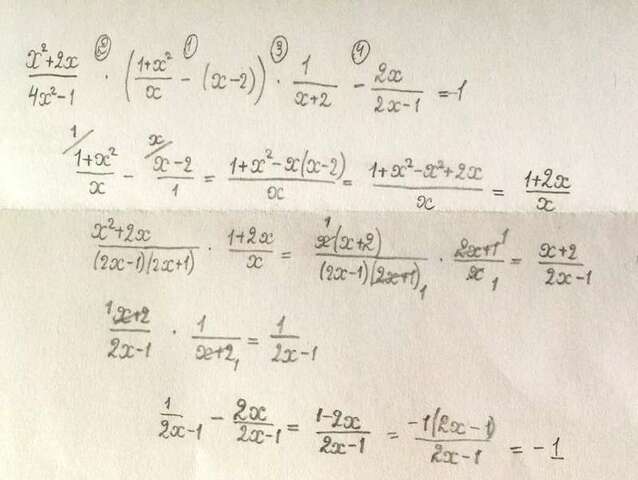 ② ① ③ ④
(x²+2x)/(4x²-1) · ((1+x²)/x - (x-2)) · 1/(x+2) - 2x/(2x-1) = -1
1/ (1+x²)/x - x/ (x-2)/1 = (1+x²-x(x-2))/x = (1+x²-x²+2x)/x = (1+2x)/x
(x²+2x)/((2x-1)(2x+1)) · (1+2x)/x = ¹x(x+2)/((2x-1)(2x+1)₁) · (2x+1)¹/x₁ = (x+2)/(2x-1)
¹(x+2)/(2x-1) · 1/(x+2)₁ = 1/(2x-1)
1/(2x-1) - 2x/(2x-1) = (1-2x)/(2x-1) = -1(2x-1)/(2x-1) = -1